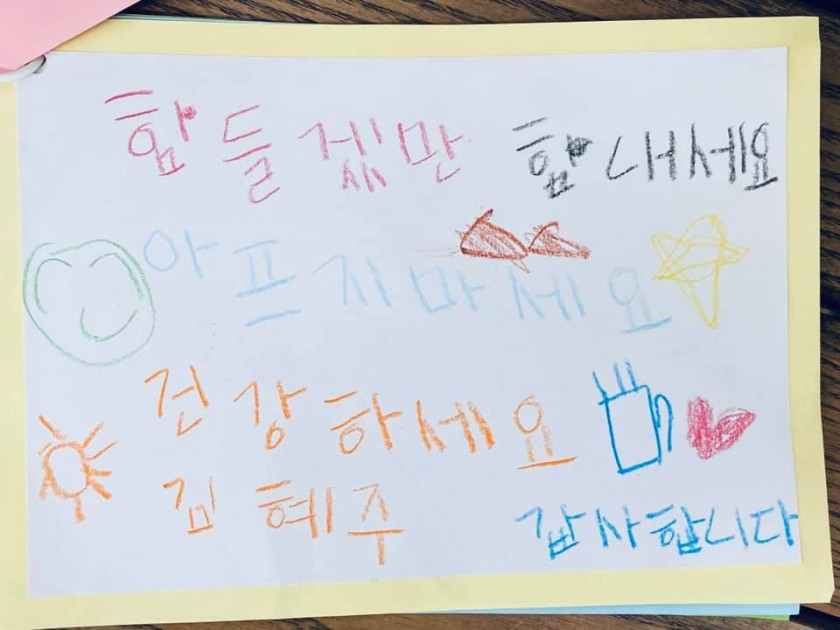 함들겠만 함내세요
아프지마세요
건강하세요
김혜주 갑사합니다